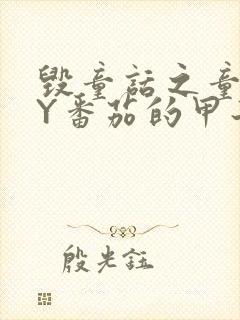 毁童话之童
Y番茄的甲
殷光钰